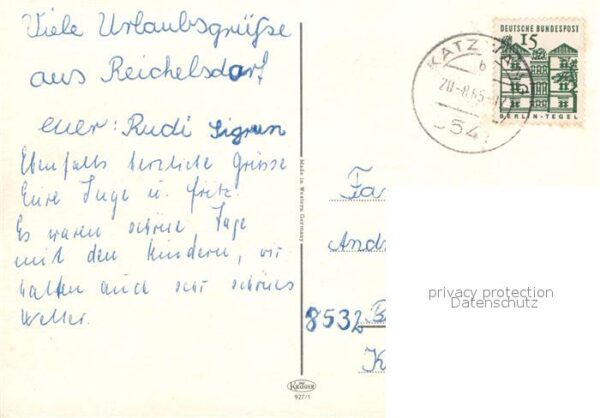 Viele Urlaubsgrüße
aus Reichelsdorf
euer: Rudi Sigrun
Ebenfalls herzliche Grüsse
Eure Inge u. Fritz.
Es waren schöne Tage
mit den Kindern, wir
hatten auch sehr schönes
Wetter.
Made in Western Germany
KRÜGER
927/1
DEUTSCHE BUNDESPOST
15
BERLIN-TEGEL
KATZ
b
20.-8.65
54
Fa
And
8532 B
K
privacy protection
Datenschutz